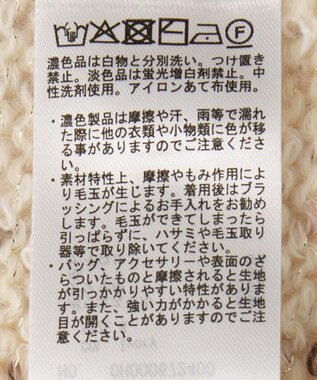 濃色品は白物と分別洗い。つけ置き
禁止。淡色品は蛍光増白剤禁止。中
性洗剤使用。アイロンあて布使用。
・濃色製品は摩擦や汗、雨等で濡れ
た際に他の衣類や小物類に色が移
る事がありますのでご注意くださ
い。
・素材特性上、摩擦やもみ作用によ
り毛玉が生じます。着用後はブラ
ッシングによるお手入れをお勧め
します。毛玉ができてしまったら
引っぱらずに、ハサミや毛玉取り
器等で取り除いてください。
・バッグ、アクセサリーや表面のざ
らついたものと摩擦されると生地
が引っかかりやすい特性がありま
す。また、強い力がかかると生地
目が開くことがありますのでご注
意ください。